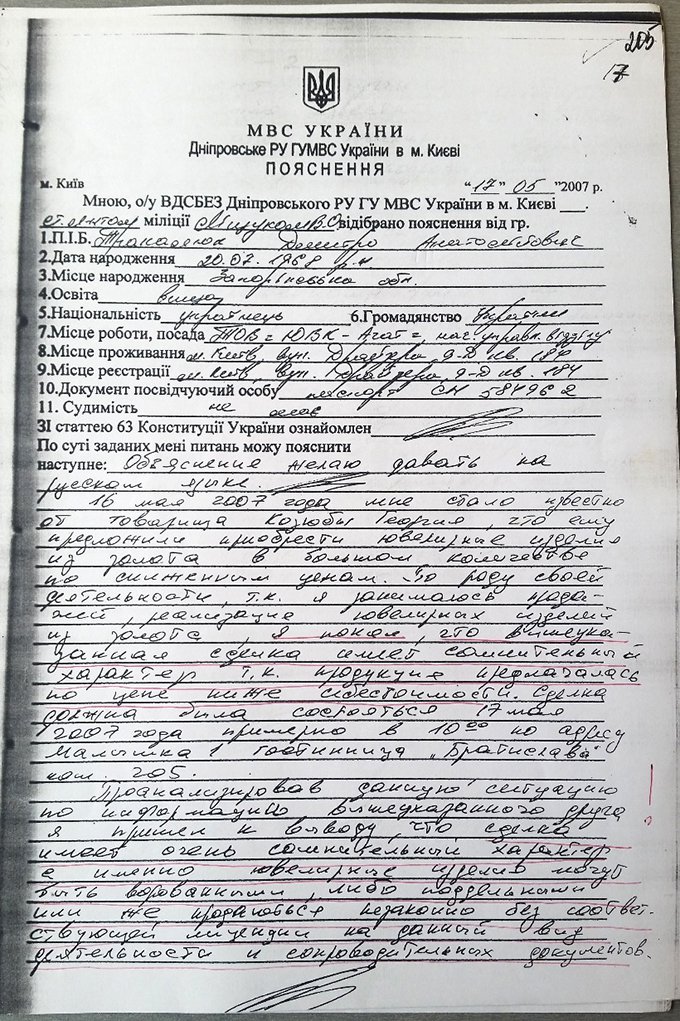 205
17
МВС УКРАЇНИ
Дніпровське РУ ГУМВС України в м. Києві
ПОЯСНЕННЯ
м. Київ "17" 05 "2007 р.
Мною, о/у ВДСБЕЗ Дніпровського РУ ГУ МВС України в м. Києві
міліції відібрано пояснення від гр.
1.П.І.Б. Дмитро Анатолійович
2.Дата народження 20.07.1968 р.н
3.Місце народження Запорізька обл.
4.Освіта вища
5.Національність українець 6.Громадянство України
7.Місце роботи, посада ТОВ "ЮВК-Агат" нач. управл. відділу
8.Місце проживання м. Київ, вул. Драйзера, 9-Д кв. 184
9.Місце реєстрації м. Київ, вул. Драйзера, 9-Д кв. 184
10.Документ посвідчуючий особу паспорт СН 584962
11. Судимість не має
ЗІ статтею 63 Конституції України ознайомлен
По суті заданих мені питань можу пояснити
наступне: Объяснение желаю давать на
русском языке.
16 мая 2007 года мне стало известно
от товарища Козюбы Георгия, что ему
предложили приобрести ювелирные изделия
из золота в большом количестве
по сниженным ценам. По роду своей
деятельности, т.к. я занимаюсь прода-
жей, реализацие ювелирных изделий
из золота, я понял, что вышеука-
занная сделка имеет сомнительный
характер т.к. продукция предлагалась
по цене ниже себестоимости. Сделка
должна была состояться 17 мая
2007 года примерно в 10 00 по адресу
Малышка 1 гостинница „Братислава"
ком. 205.
Проанализировав данную ситуацию
по информации вышеуказанного друга
я пришел к выводу, что сделка
имеет очень сомнительный характер
а именно ювелирные изделия могут
быть ворованными, либо поддельными
или же продаються незаконно без соответ-
ствующей лицензии на данный вид
деятельности и сопроводительных документов.